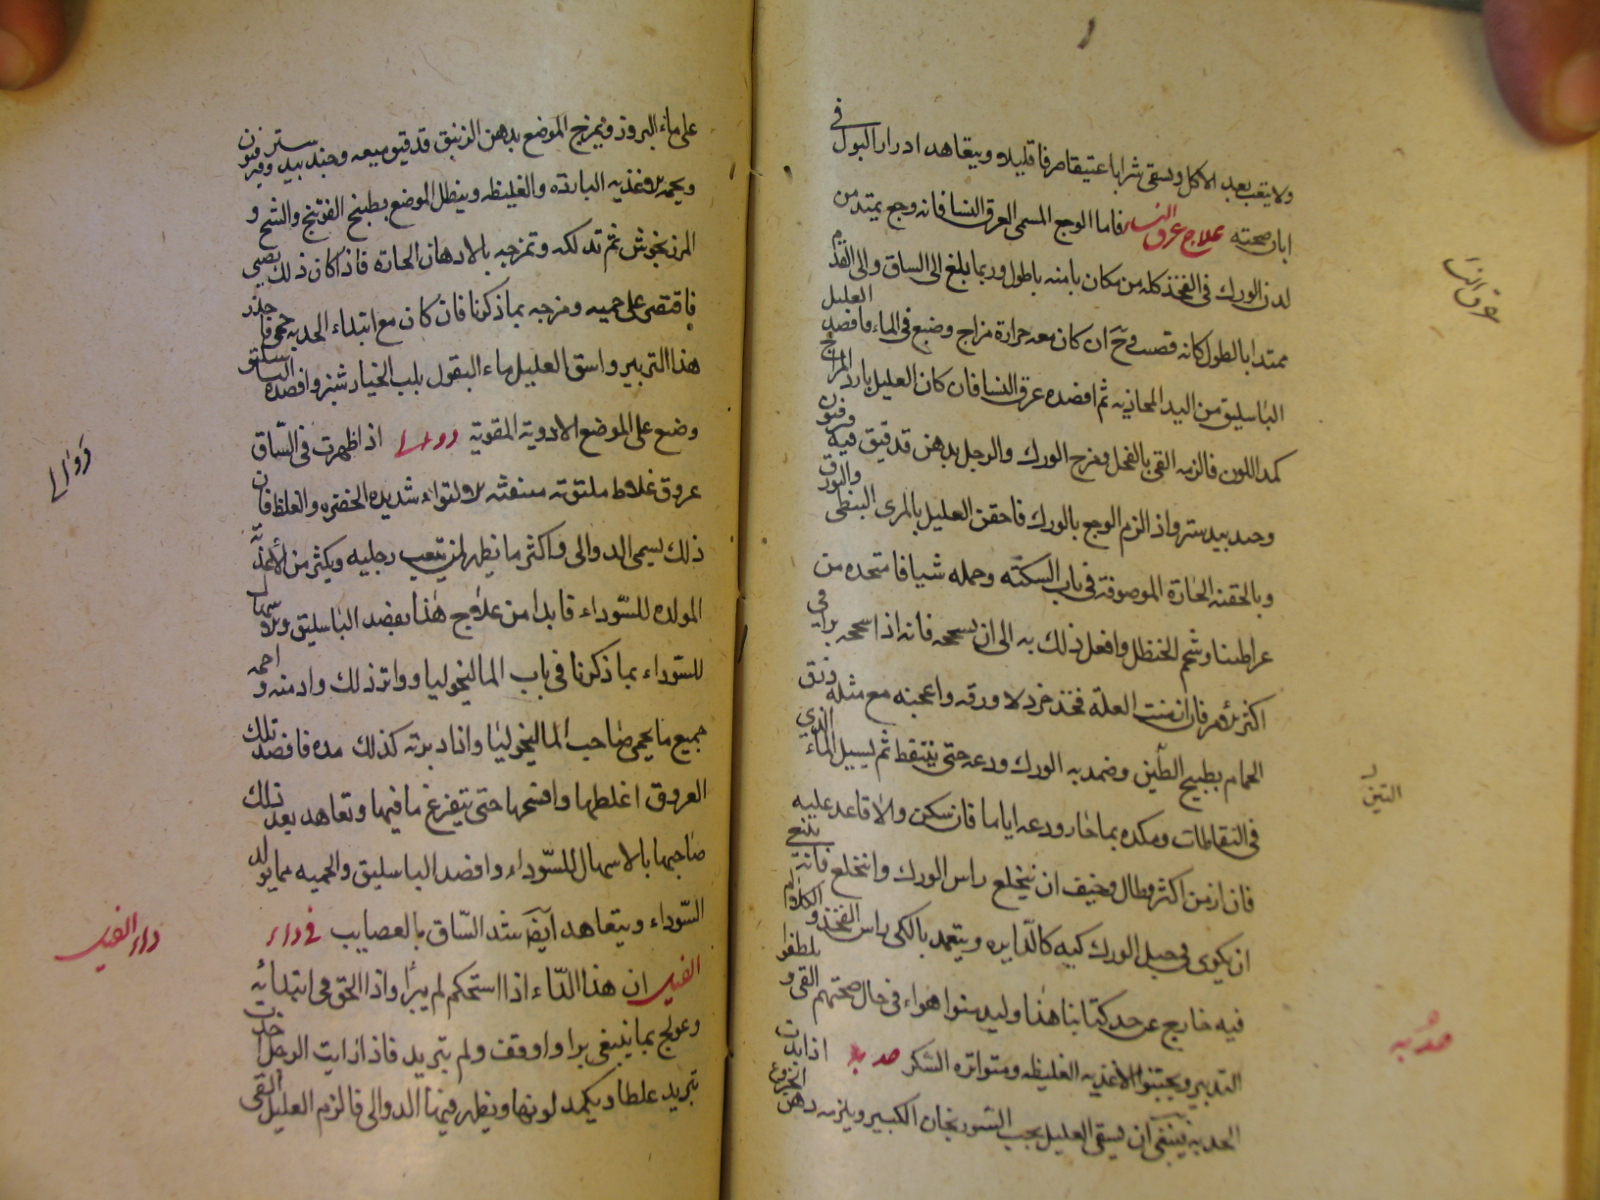 ولا يتعب بعد الاكل ويسقى شرابا عتيقا صرفا قليلا ويتعاهد ادرار البول في
ابان صحته علاج عرق النسا فاما الوجع المسمى العرق النسا فانه وجع يمتد من
لدن الورك في الفخذ كله من مكان بامنه باطول وربما بلغ الى الساق والى القدم
ممتدا بالطول كانه قصب وح ان كان معه حرارة مزاج وضع في الماء فافصد العليل
الباسليق من اليد المحاذيه ثم افصده عرق النسا فان كان العليل بارد المزاج
كمد اللون فالزمه القي بالفجل ومرخ الورك والرجل بدهن قد فتق فيه فرفيون
وجندبيدستر واذا لزم الوجع بالورك فاحقن العليل بالمرى النبطى والبورق
وبالحقنه الحارة الموصوفة في باب السكته وحمله شيافا متخده من
عرطنيثا وشحم الحنظل وافعل ذلك به الى ان يسحجه فانه اذا سحجه برا في
اكثر الامر فان ازمنت العلة فخذ خردلا ودقه واعجنه مع مثله ذرق
الحمام بطبيخ التين وضمد به الورك ودعه حتى يتنفط ثم يسيل الماء الذي
في النفاطات ومكده بما حار ودعه اياما فان سكن والا فاعد عليه
فان ازمن اكثر وطال وخيف ان ينخلع راس الورك وانخلع فانه ينبغي
ان يكوى في حبل الورك كيه كالدايره ويتعمد بالكي راس الفخذ و الكلام
فيه خارج عن حد كتابنا هذا وليدمنوا هواء في حال صحتهم القي و تلطف
التدبير ويجتنبوا الاغذيه الغليظه ومتواتره السكر حدبه اذا بدت
الحدبه فينبغي ان يسقى العليل بحب السورنجان الكبير ويلزمه دهن الخروع
عرق النسا
التين
حدبه
على ماء البزور ويمرخ الموضع بدهن الزنبق قد فتق ميعه وجندبيدستر وفرفيون
ويحميه الاغذيه البارده والغليظه وينطل الموضع بطبيخ الفوتنج والشيح و
المرزنجوش ثم تدلكه وتمرخه بالادهان الحارة فاذا كان ذلك بصبى
فاقتصر على حميه ومرخه بما ذكرنا فان كان مع ابتداء الحدبه حمى فاحذر
هذا التدبير واسق العليل ماء البقول بلب الخيار شنبر وافصده الباسليق
وضع على الموضع الادويه المقويه دوالى اذا ظهرت في الساق
عروق غلاظ ملتويه الالتواء شديده الخضره والغلظ فان
ذلك يسمى الدوالى واكثر ما يظهر لمن يتعب رجليه ويكثر من الاغذيه
المولده للسوداء فابدا من علاج هذا بفصد الباسليق والاسهال
للسوداء بما ذكرنا في باب الماليخوليا وواتر ذلك وادمنه و احمه
جميع ما يحمى صاحب الماليخوليا واذا دبرته كذلك مده فافصد تلك
العروق اغلظها وافتحها حتى يتفرغ ما فيها وتعاهد بعد ذلك
صاحبها بالاسهال للسوداء وافصد الباسليق والحميه مما يولد
السوداء ويتعاهد ايضا شد الساق بالعصايب في داء
الفيل ان هذا الداء اذا استحكم لم يبرا واذا الحق في ابتدائه
وعولج بما ينبغي برا او وقف ولم يتزيد فاذا رايت الرجل اخذت
تتزيد غلظا ويكمد لونها ويظهر فيها الدوالى فالزم العليل القى
دوالى
داء الفيل